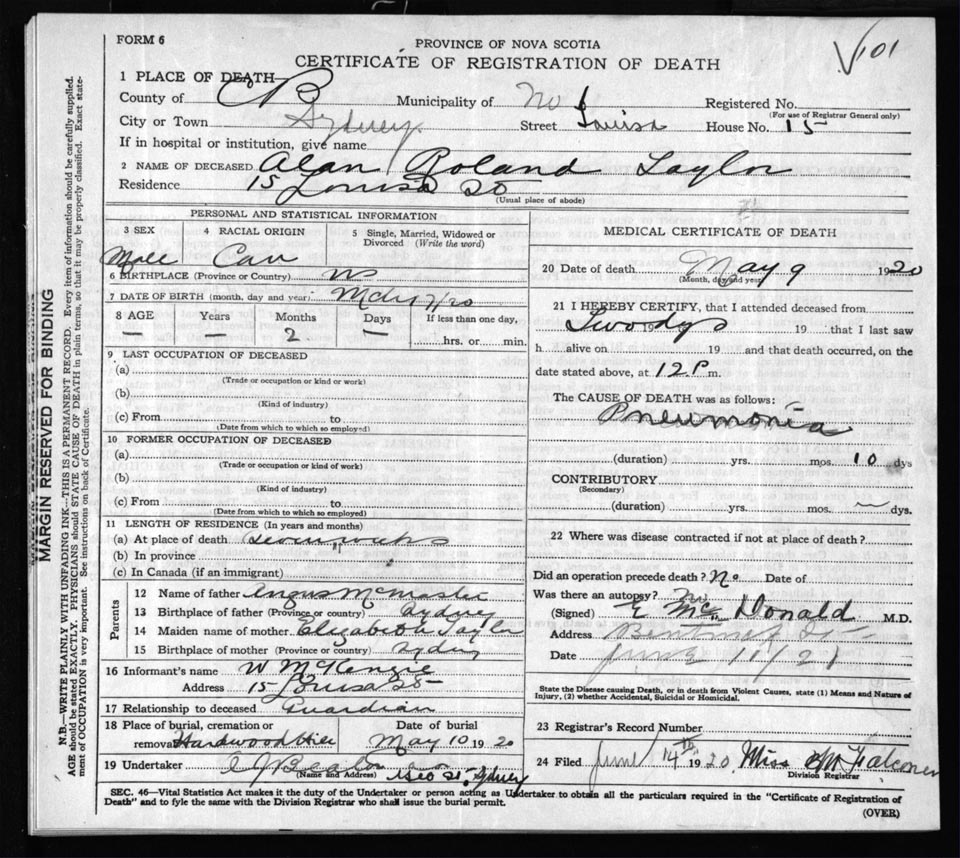 FORM 6
PROVINCE OF NOVA SCOTIA
CERTIFICATE OF REGISTRATION OF DEATH
V101
1 PLACE OF DEATH
County of CB Municipality of No 1 Registered No.
(For use of Registrar General only)
City or Town Sydney Street Louisa House No. 15
If in hospital or institution, give name
2 NAME OF DECEASED Alan Roland Taylor
Residence 15 Louisa St
(Usual place of abode)
PERSONAL AND STATISTICAL INFORMATION
3 SEX 4 RACIAL ORIGIN 5 Single, Married, Widowed or Divorced (Write the word)
Male Can
6 BIRTHPLACE (Province or Country) NS
7 DATE OF BIRTH (month, day and year) Mch 7/20
8 AGE Years Months Days If less than one day,
— — 2 — hrs. or min.
9 LAST OCCUPATION OF DECEASED
(a)
(Trade or occupation or kind or work)
(b)
(Kind of industry)
(c) From to
(Date from which to which so employed)
10 FORMER OCCUPATION OF DECEASED
(a)
(Trade or occupation or kind of work)
(b)
(Kind of industry)
(c) From to
(Date from which to which so employed)
11 LENGTH OF RESIDENCE (In years and months)
(a) At place of death weeks
(b) In province
(c) In Canada (if an immigrant)
Parents
12 Name of father Angus McMaster
13 Birthplace of father (Province or country) Sydney
14 Maiden name of mother Elizabeth Taylor
15 Birthplace of mother (Province or country) Sydney
16 Informant's name W McKenzie
Address 15 Louisa St
17 Relationship to deceased Guardian
18 Place of burial, cremation or removal Hardwood Hill
Date of burial
May 10 1920
19 Undertaker
(Name and Address) Geo St. Sydney
MEDICAL CERTIFICATE OF DEATH
20 Date of death May 9 1920
(Month, day and year)
21 I HEREBY CERTIFY, that I attended deceased from
Two dys 19 19 that I last saw
h alive on 19 and that death occurred, on the
date stated above, at 12 P m.
The CAUSE OF DEATH was as follows:
Pneumonia
(duration) yrs. mos. 10 dys
CONTRIBUTORY
(Secondary)
(duration) yrs. mos. dys.
22 Where was disease contracted if not at place of death?
Did an operation precede death? No Date of
Was there an autopsy? No
(Signed) E McDonald M.D.
Address Bentinck St
Date June 11/21
State the Disease causing Death, or in death from Violent Causes, state (1) Means and Nature of
Injury, (2) whether Accidental, Suicidal or Homicidal.
23 Registrar's Record Number
24 Filed June 14th 1920. Miss Falconer
Division Registrar
SEC. 46—Vital Statistics Act makes it the duty of the Undertaker or person acting as Undertaker to obtain all the particulars required in the "Certificate of Registration of
Death" and to fyle the same with the Division Registrar who shall issue the burial permit.
(OVER)
MARGIN RESERVED FOR BINDING
N.B.—WRITE PLAINLY WITH UNFADING INK—THIS IS A PERMANENT RECORD. Every item of information should be carefully supplied.
AGE should be stated EXACTLY. PHYSICIANS should STATE CAUSE OF DEATH in plain terms, so that it may be properly classified. Exact state-
ment of OCCUPATION is very important. See instructions on back of Certificate.